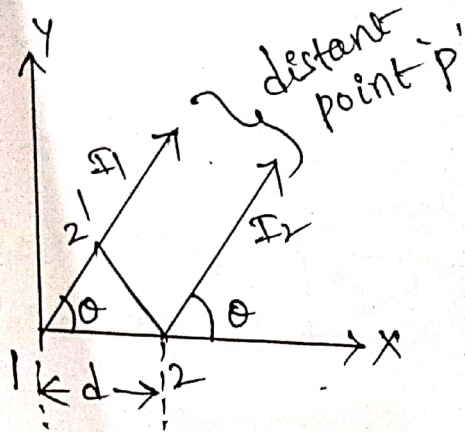 Y
distant
point `p'
I1
2'
I2
θ
θ
X
1
d
2